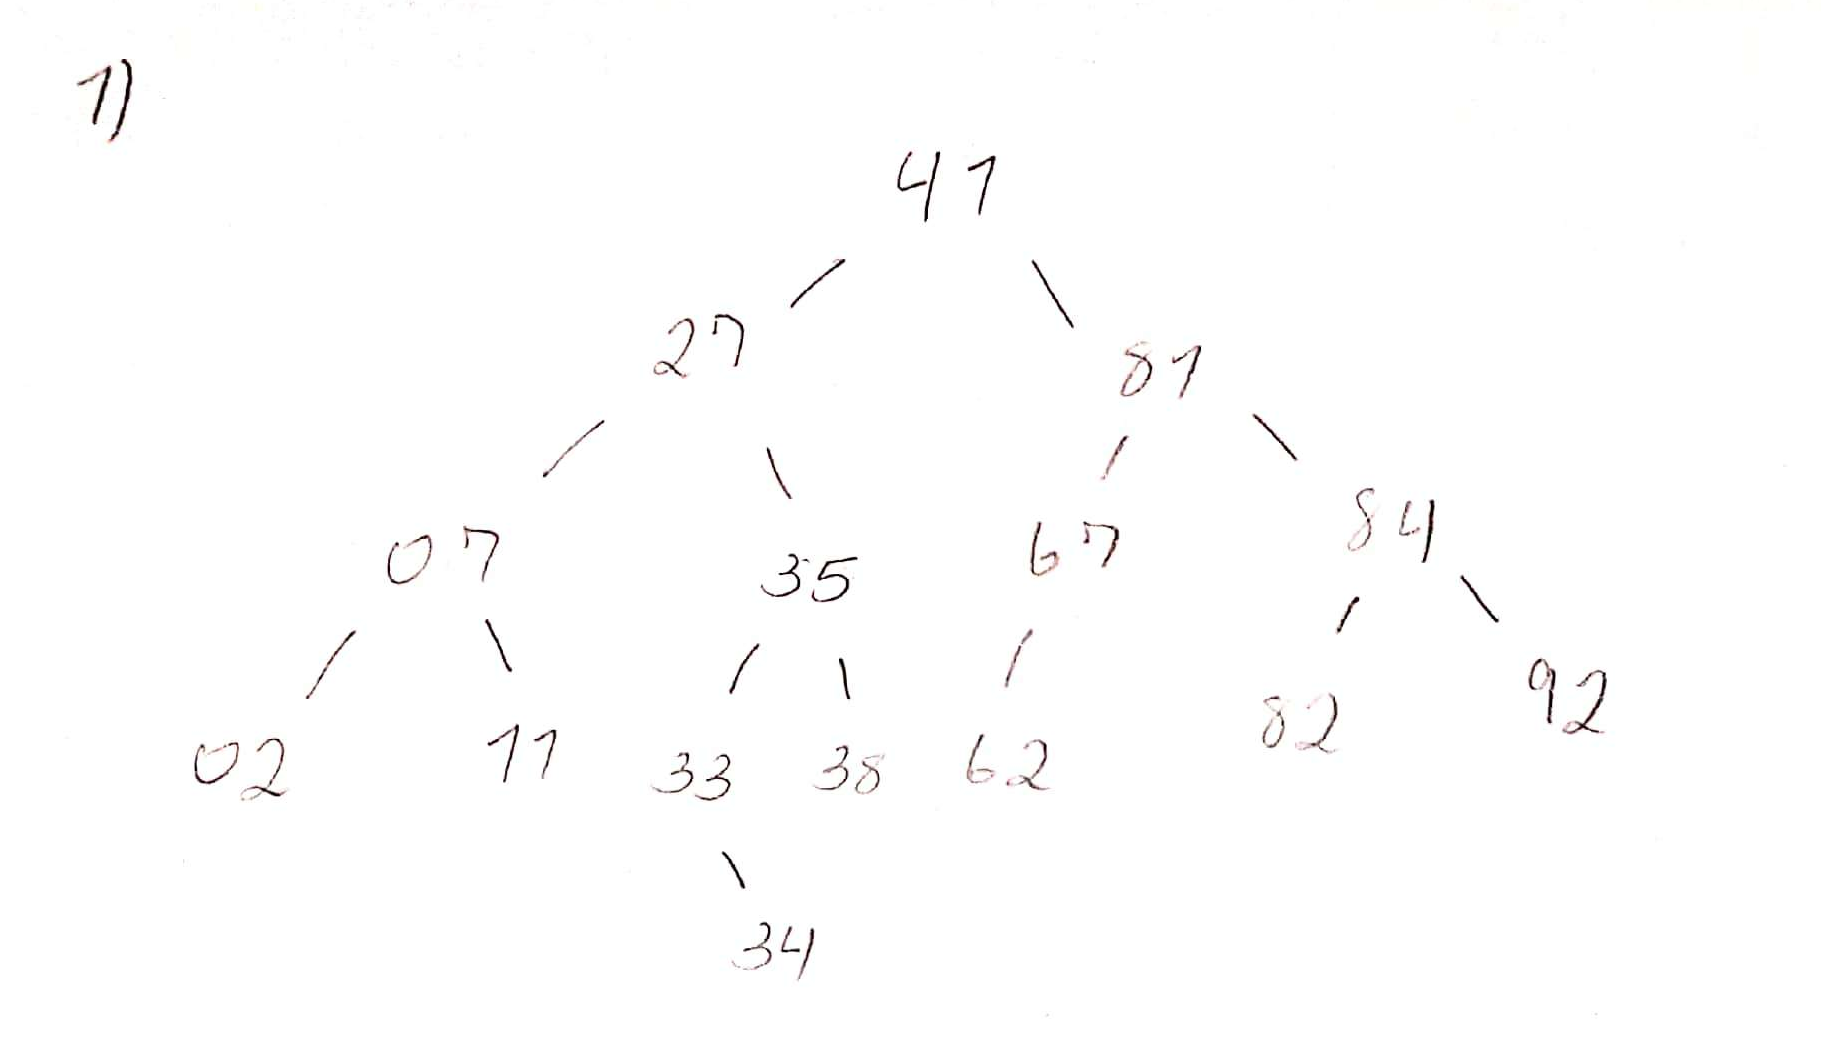 1)
41
27 81
07 35 67 84
02 11 33 38 62 82 92
34